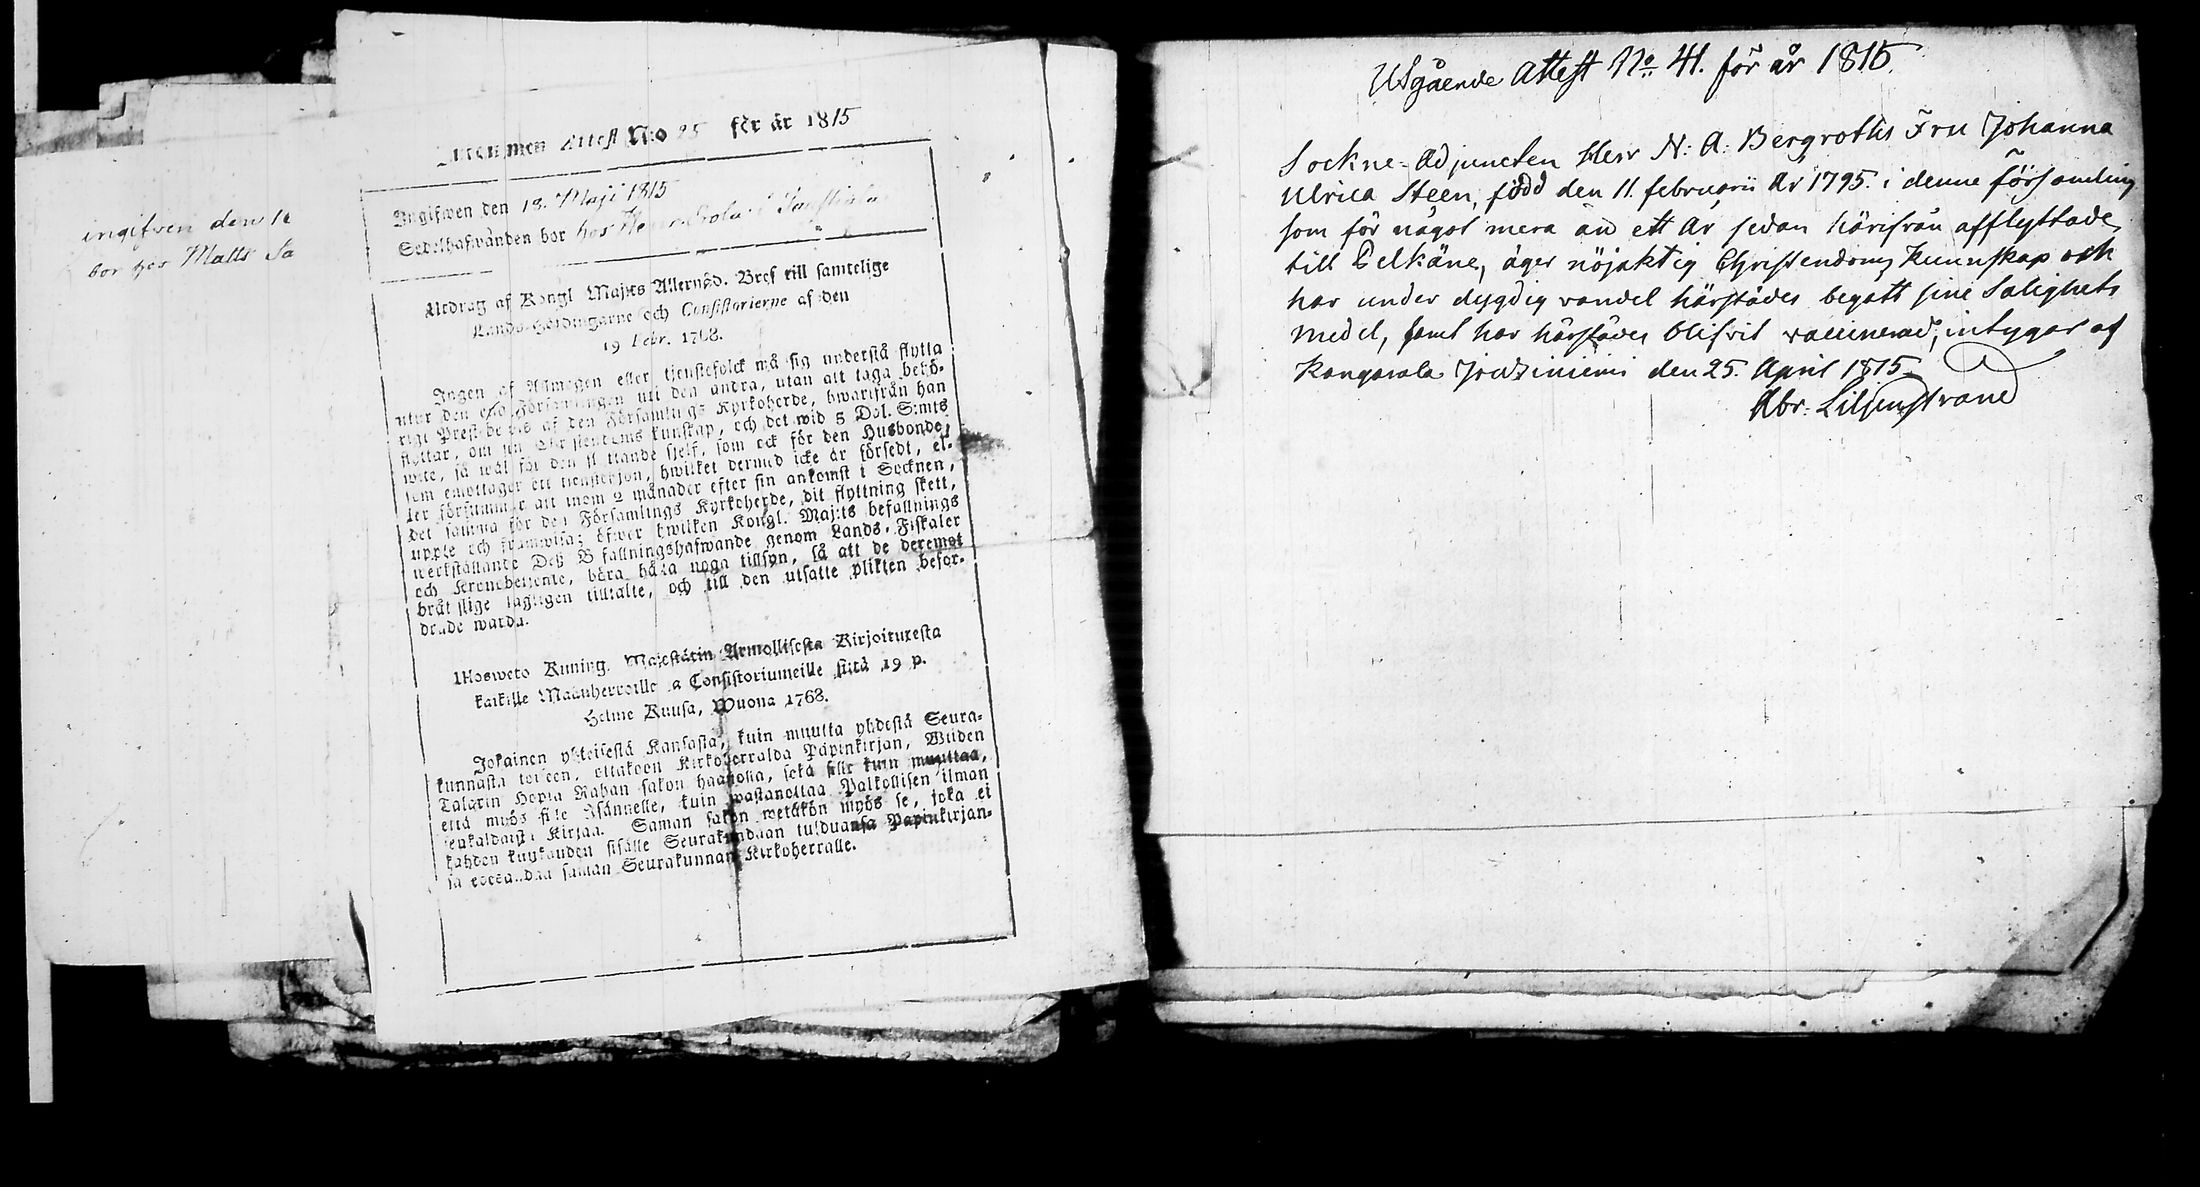 ingifven den 1
bor hos Matts Sa
Attest N:o 25 för år 1815
Ingifwen den 18. Maji 1815
Sedelhafwanden bor hos
Utdrag af Kongl Maj:ts Allernåd. Bref till samtelige
Lands-Höfdingarne och Consistorierne af den
19 Febr. 1768.
Ingen af Allmogen eller tjenstefolck må sig understå flytta
utur den ena Församlingen uti den andra, utan att taga behö-
rigt Prestebewis af den Församlings Kyrkoherde, hwarifrån han
flyttar, om sin Christendoms kunskap, och det wid 5 Dal. S:mts
wite, så wäl för den flyttande sjelf, som ock för den Husbonde,
som emottager ett tienstehjon, hwilket dermed icke är försedt, el-
ler försummar att inom 2 månader efter sin ankomst i Socknen,
det samma för den Församlings Kyrkoherde, dit flyttning skett,
uppte och framwisa; öfwer hwilken Kongl. Maj:ts befallnings
werkställande Deß Befallningshafwande genom Lands-Fiskaler
och Kronobetjente, böra hålla noga tillsyn, så att de deremot
bråtslige lagligen tilltalte, och till den utsatte plikten befor-
drade warda.
Ulosweto Kuning. Majestätin Armollisesta Kirjoituxesta
kaikille Maanherroille ja Consistoriumeille siitä 19 p.
Helme Kuusa, Wuona 1768.
Jokainen yhteisestä Kansasta, kuin muutta yhdestä Seura-
kunnasta toiseen, ottakoon Kirkoherralda Papinkirjan, Wiiden
Talarin Hopia Rahan sakon haastolla, sekä sille kuin muuttaa,
että myös sille Isännelle, kuin wastanottaa Palkollisen ilman
senkaldaista Kirjaa. Saman sakon wetäkön myös se, joka ei
kahden kuukauden sisälle Seurakundaan tulduansa Papinkirjan-
sa edesanna saman Seurakunnan Kirkoherralle.
Utgående Attest No 41. för år 1815.
Sockne-Adjuncten Herr N: A: Bergroths Fru Johanna
Ulrica Steen, född den 11. februarii År 1795. i denne församling
som för något mera än ett År sedan härifrån afflyttade
till Pelkäne, äger nöjaktig Christendoms Kunnskap och
har under dygdig vandel härstädes begått sine Salighets
medel, samt har härstädes blifvit vaccinerad, intygar af
Kangasala Joutziniemi den 25. April 1815.
Abr. Liljenstrand